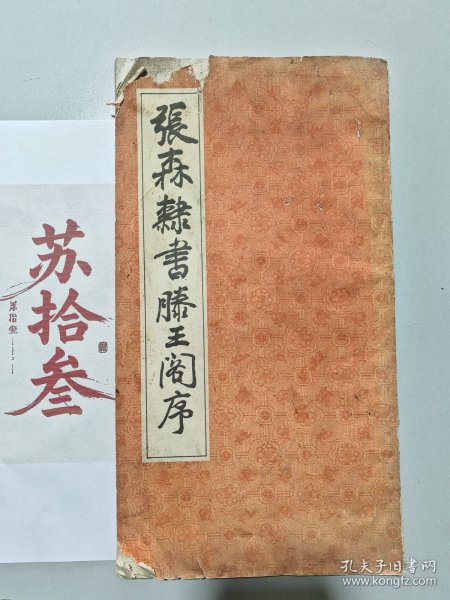 張森隸書滕王阁序
苏拾叁
苏拾叁
孔夫子旧书网
www.kongfz.com